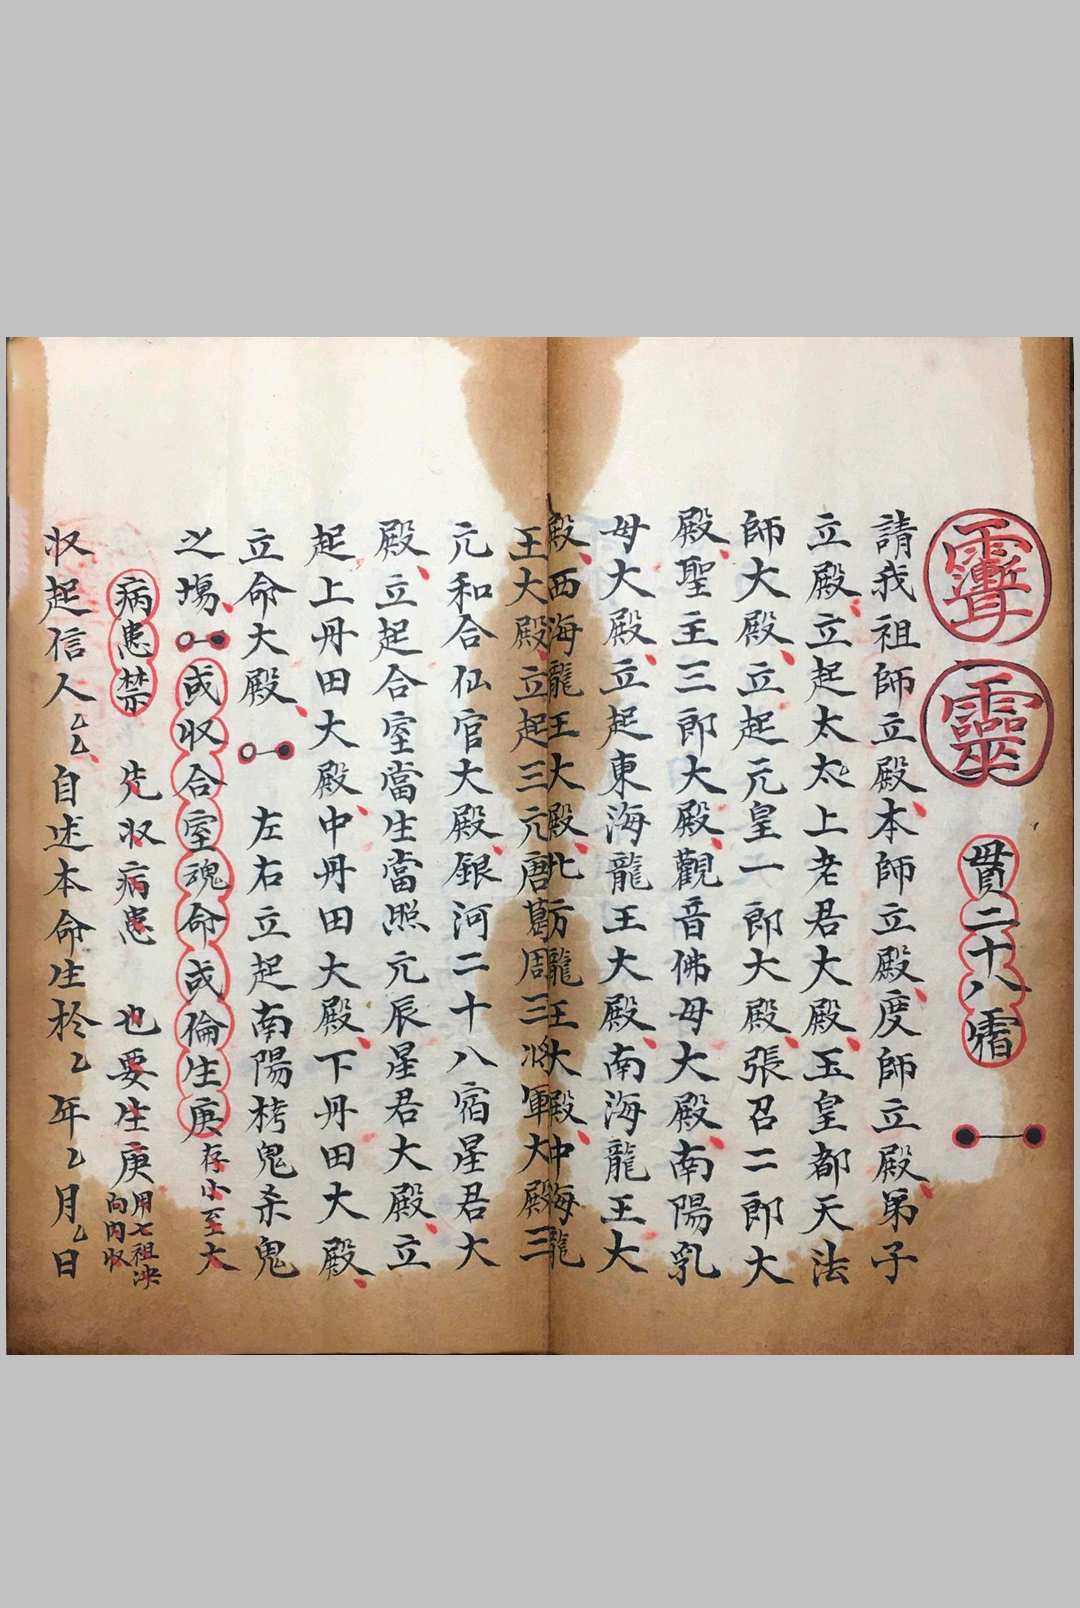 貫二十八
請我祖師立殿本師立殿度師立殿弟子
立殿立起太太上老君大殿玉皇都天法
師大殿立起元皇一郎大殿張召二郎大
殿聖主三郎大殿觀音佛母大殿南陽乳
母大殿立起東海龍王大殿南海龍王大
殿西海龍王大殿北方龍王大殿中海龍
王大殿立起三元唐葛周三將軍大殿三
元和合仙官大殿銀河二十八宿星君大
殿立起合室當生當照元辰星君大殿立
起上丹田大殿中丹田大殿下丹田大殿
立命大殿 左右立起南陽栲鬼杀鬼
之場 或収合室魂命或倫生庚存小至大
病患禁 先収病患 也要生庚用七祖決向內収
収起信人乙乙自述本命生於乙年乙月乙日